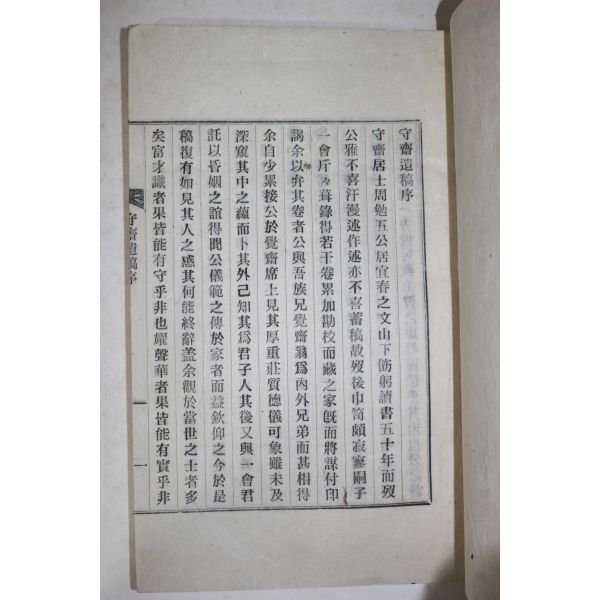 守齋遺稿序
守齋居士周勉五公居宜春之文山下飭躬讀書五十年而歿
公雅不喜汗漫述作述亦不喜蓄稿故歿後巾笥頗寂寥嗣子
一會斤々葺錄得若干卷累加勘校而藏之家旣而將謀付印
謁余以弁其卷者公與吾族兄覺齋翁爲內外兄弟而甚相得
余自少累接公於覺齋席上見其厚重莊質德儀可象雖未及
深窺其中之蘊而卜其外已知其爲君子人其後又與一會君
託以昏姻之誼得聞公儀範之傳於家者而益欽仰之今於是
稿復有如見其人之感其何能終辭盖余觀於當世之士者多
矣富才識者果皆能有守乎非也耀聲華者果皆能有實乎非
守齋遺稿序
一